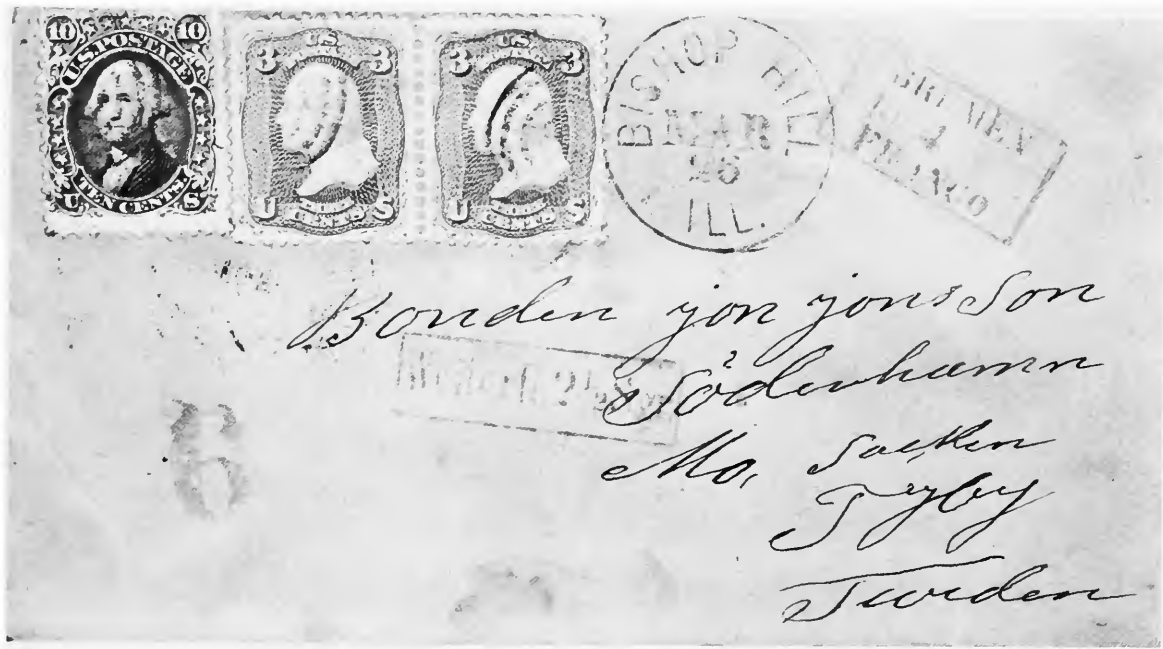 10 10
U.S. POSTAGE
TEN CENTS.
U S
U.S.
3 3
U S
CENTS
U.S.
3 3
U S
CENTS
BISHOP HILL
MAR
26
ILL.
BREMEN
FRANCO
Bonden jon jonsson
Söderhamn
Mo, Socken
Tyby
Sweden